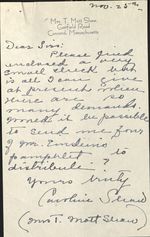 Nov. 25th
Mrs. T. Mott Shaw
Garfield Road
Concord, Massachusetts
Dear Sirs:
Please find
enclosed a very
small check but
is all I can give
at present when
there are so
many demands.
Would it be possible
to send me four
of Mr.
pamphlet to
distribute?
Yours truly
Caroline Shaw
(Mrs. T. Mott Shaw)